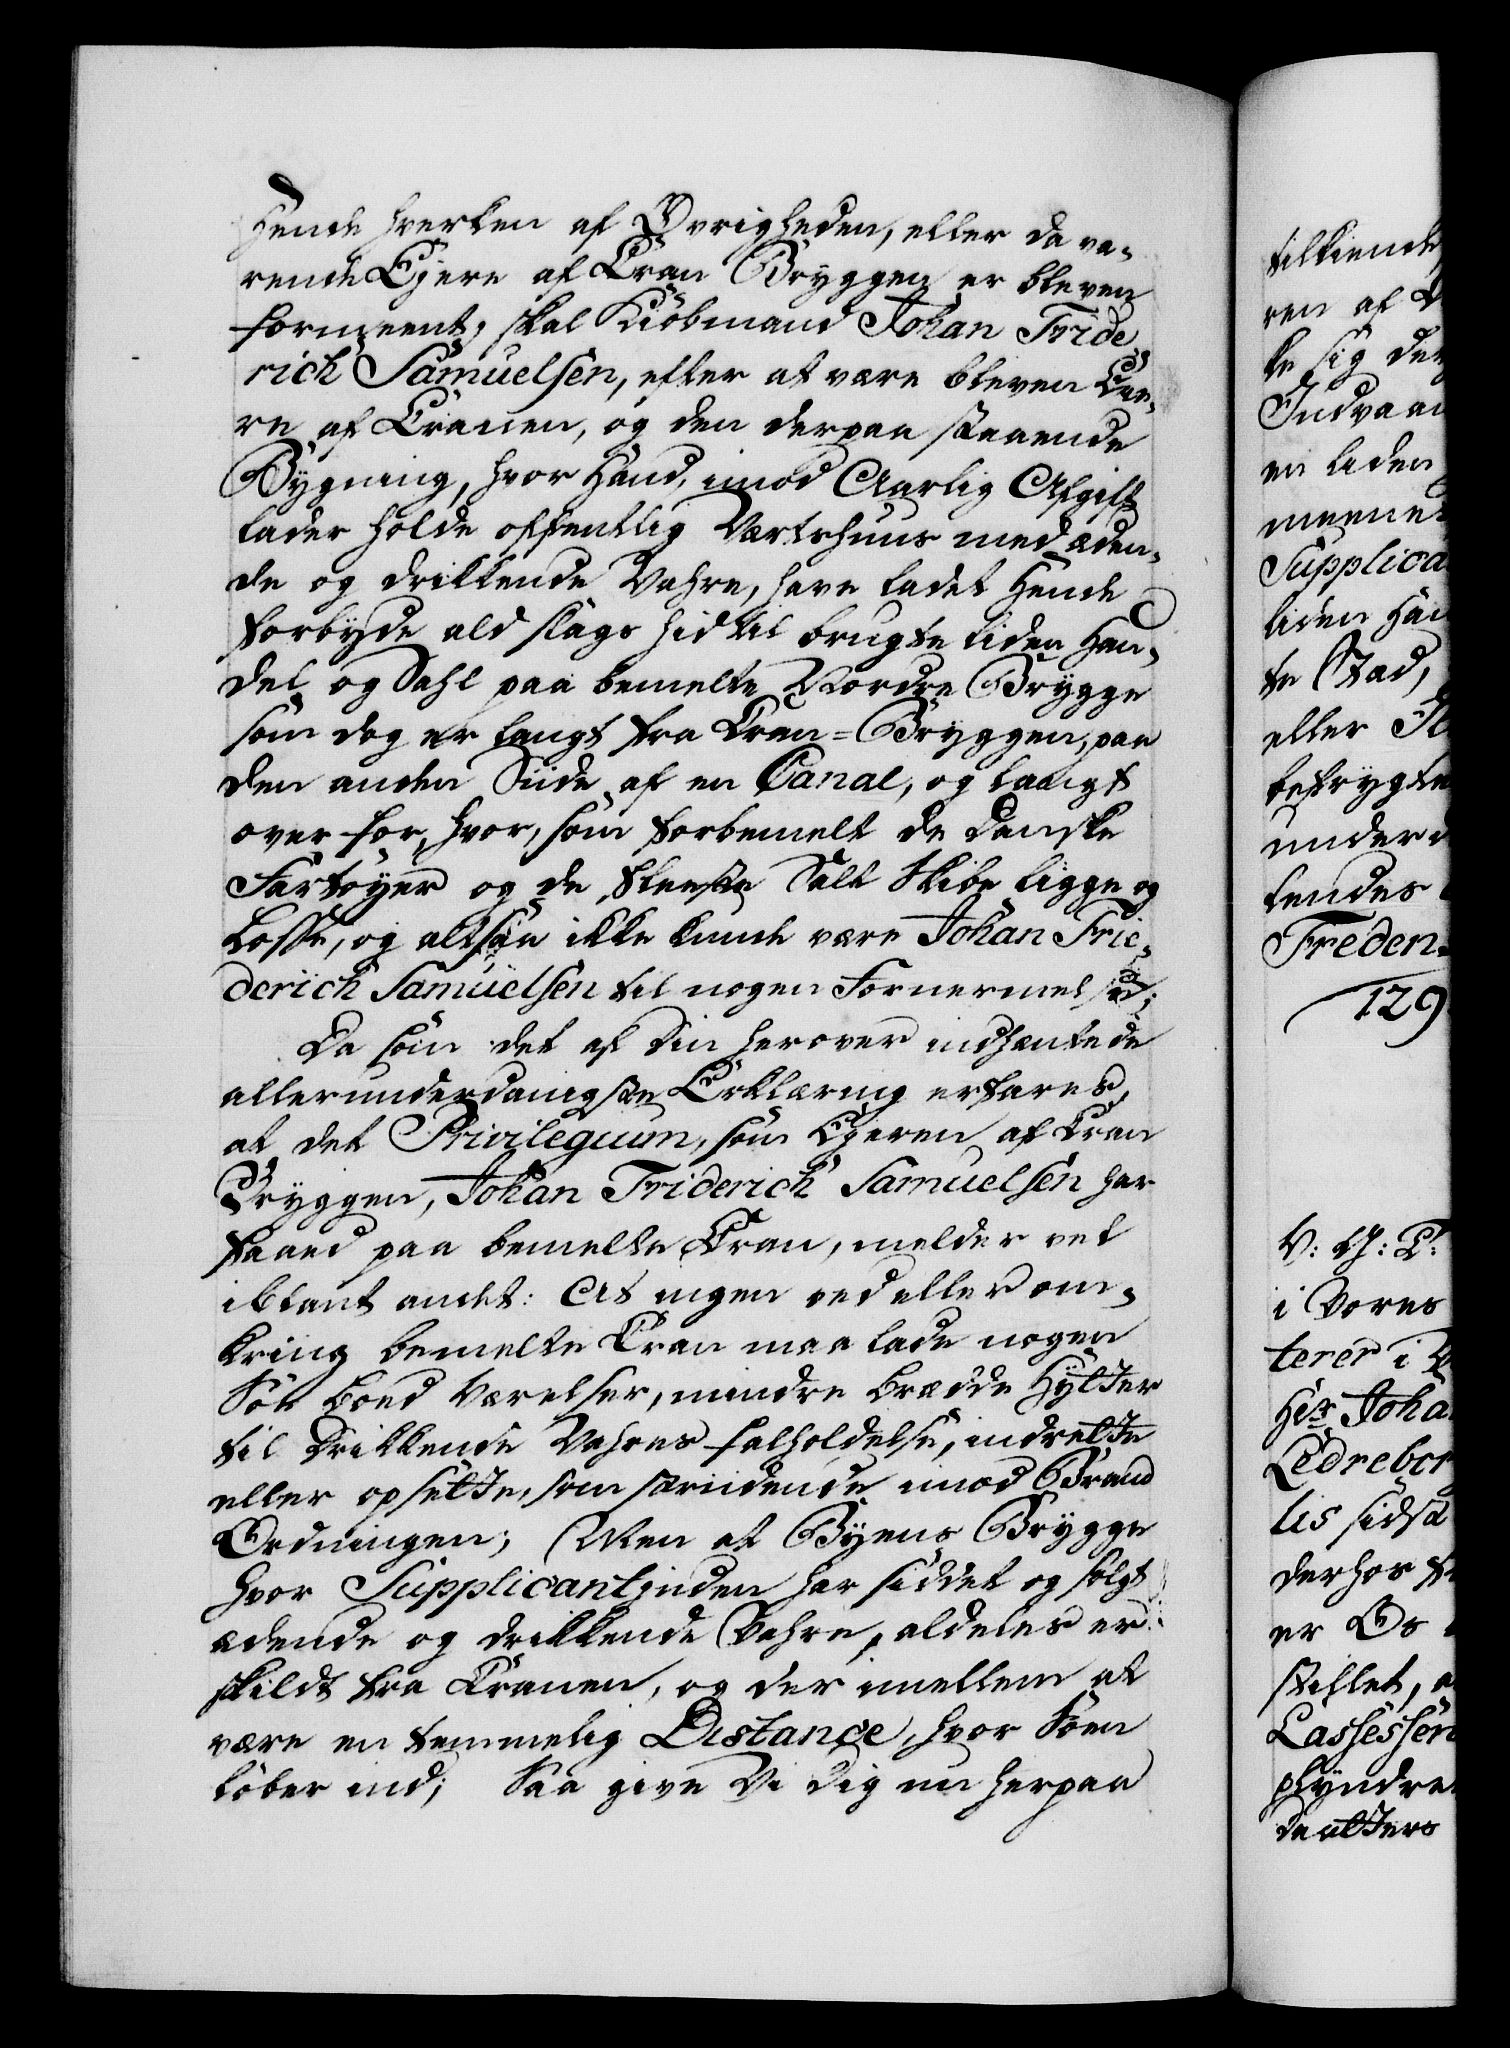 Hende hverken af Øvrigheden, eller da va-
rende Ejere af Cran Bryggen er bleven
formeent, skal Kiöbmand Johan Fride
rich Samuelsen, efter at være bleven Eie-
re af Cranen, og den derpaa staaende
Bygning, hvor Hand, imod Aarlig Afgift
lader holde offentlig Værtshuus med æden-
de og drikkende Vahre, have ladet Hende
forbyde ald slags hidtil brugte liden Han-
del og Sahl paa bemelte Nordre Brygge
som dog er langt fra Cran=Bryggen, paa
den anden Siide af en Canal, og langt
over for, hvor, som forbemelt de danske
Fartöyer og de fleeste Salt Skibe ligge og
losse, og altsaa ikke kunde være Johan Frie-
derich Samuelsen til nogen Fornermelse;
Da som det af Din herover indhæntede
allerunderdanigste Erklæring erfares,
at det Privilegium, som Ejeren af Cran
Bryggen, Johan Friderich Samuelsen har
faaed paa bemelte Cran, melder vel
iblant andet: At ingen ved eller om-
kring bemelte Cran maa lade nogen
Söe boed Værelser, mindre Brædde Hytter
til drikkende Vahres falholdelse, indrette
eller opsette, som striidende imod Brand
Ordningen; Men at Byens Brygge
hvor Supplicantinden har siddet og solgt
ædende og drikkende Vahre, aldeles er
skildt fra Cranen, og der imellem at
være en temmelig Distance, hvor Söen
löber ind; Saa give Vi Dig nu herpaa
tilkiende
ren af
ke sig der
Indvaan
en liden
meene
Supplica
liden Han
te Stad,
eller
befrygte
under
lendes
Freden
129
V: G: T:
i Vores
terer i
Hr Joha
Ledrebor
lis sidst
derhos
er Os
stillet,
Lassessen
plyndre
Daatters